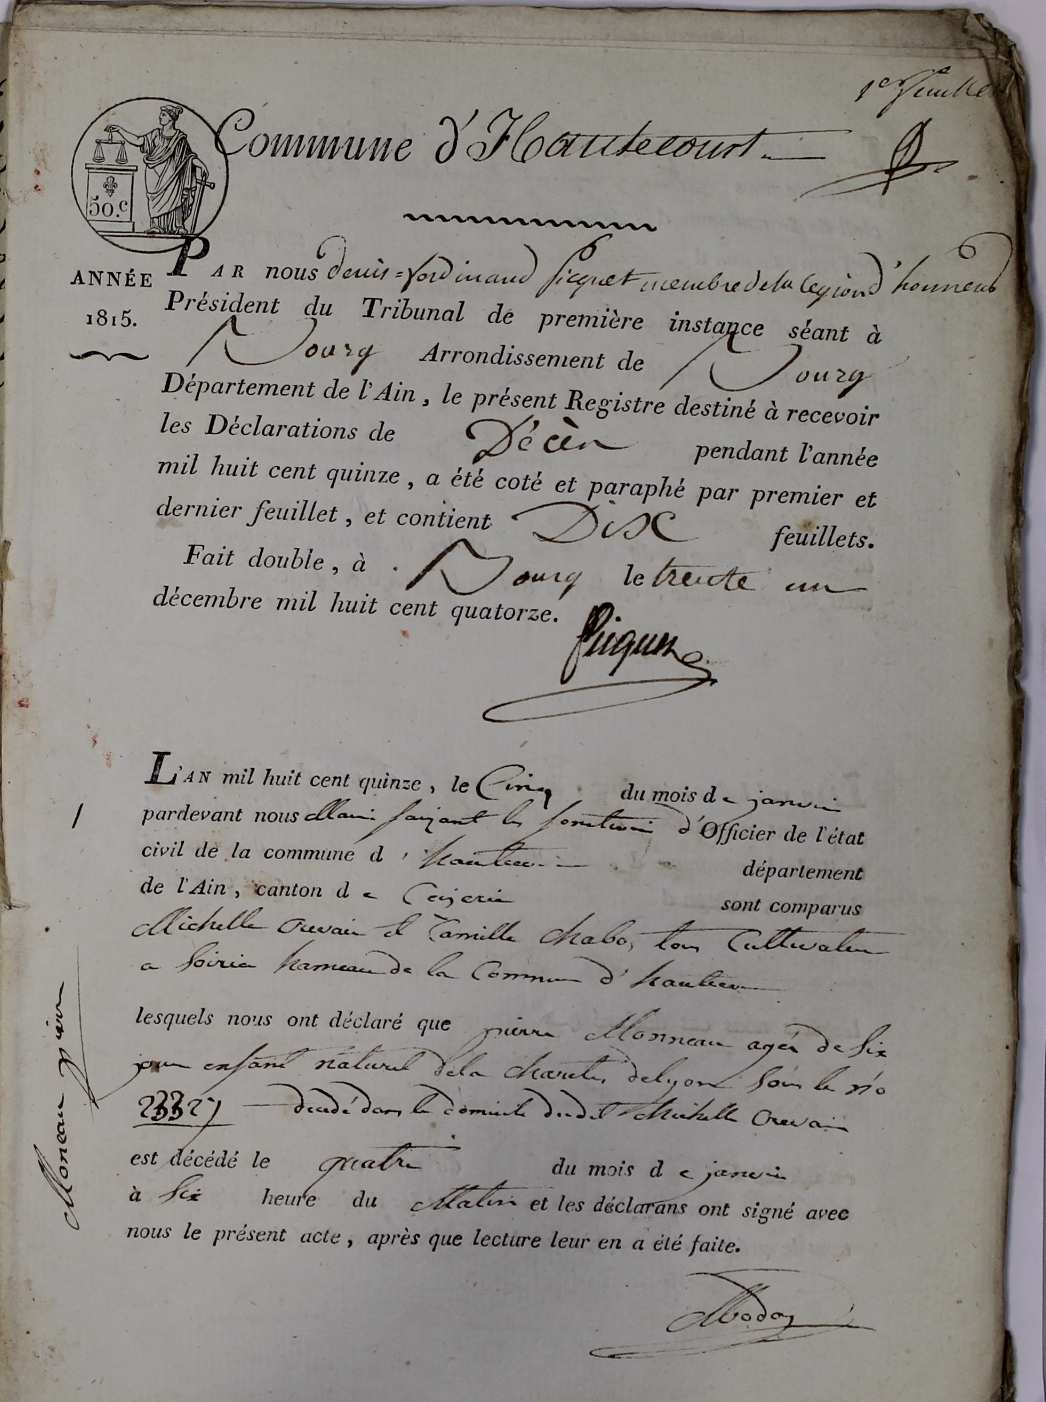 1er feuillet
Commune d'Hautecourt
50.c
ANNÉE
1815.
PAR nous denis=ferdinand picquet membre de la legion d'honneur
Président du Tribunal de première instance séant à
Bourg Arrondissement de Bourg
Département de l'Ain, le présent Registre destiné à recevoir
les Déclarations de Décès pendant l'année
mil huit cent quinze, a été coté et paraphé par premier et
dernier feuillet, et contient Dix feuillets.
Fait double, à Bourg le trente un
décembre mil huit cent quatorze.
Picquet
1
L'AN mil huit cent quinze, le Cinq du mois de janvier
pardevant nous Maire faisant les fonctions d'Officier de l'état
civil de la commune d'hautecour département
de l'Ain, canton de Ceyzeria sont comparus
Michelle et Camille Chabo tous Cultivateur
a hameau de la Commune d'hautecour
lesquels nous ont déclaré que pierre Monneau agée de Six
enfant naturel de la charité de lyon Sous le no
23327 décédé dans le domicile dudit Michelle
est décédé le quatre du mois de janvier
à Six heure du Matin et les déclarans ont signé avec
nous le présent acte, après que lecture leur en a été faite.
Moneau pierre